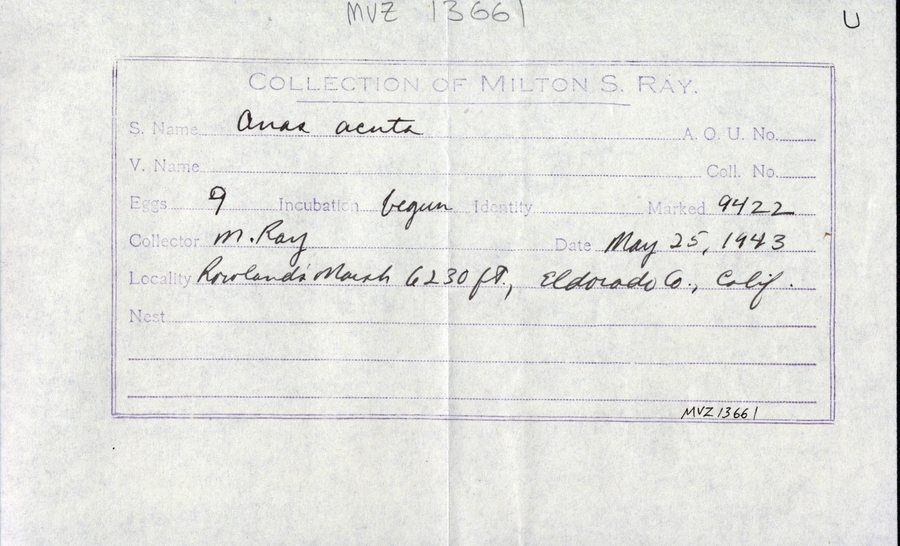 MVZ 13661
U
COLLECTION OF MILTON S. RAY.
S. Name Anas acuta A. O. U. No.
V. Name Coll. No.
Eggs 9 Incubation begun Identity Marked 9422
Collector M. Ray Date May 25, 1943
Locality Rowland's Marsh 6230 ft., Eldorado Co., Calif.
Nest
MVZ 13661